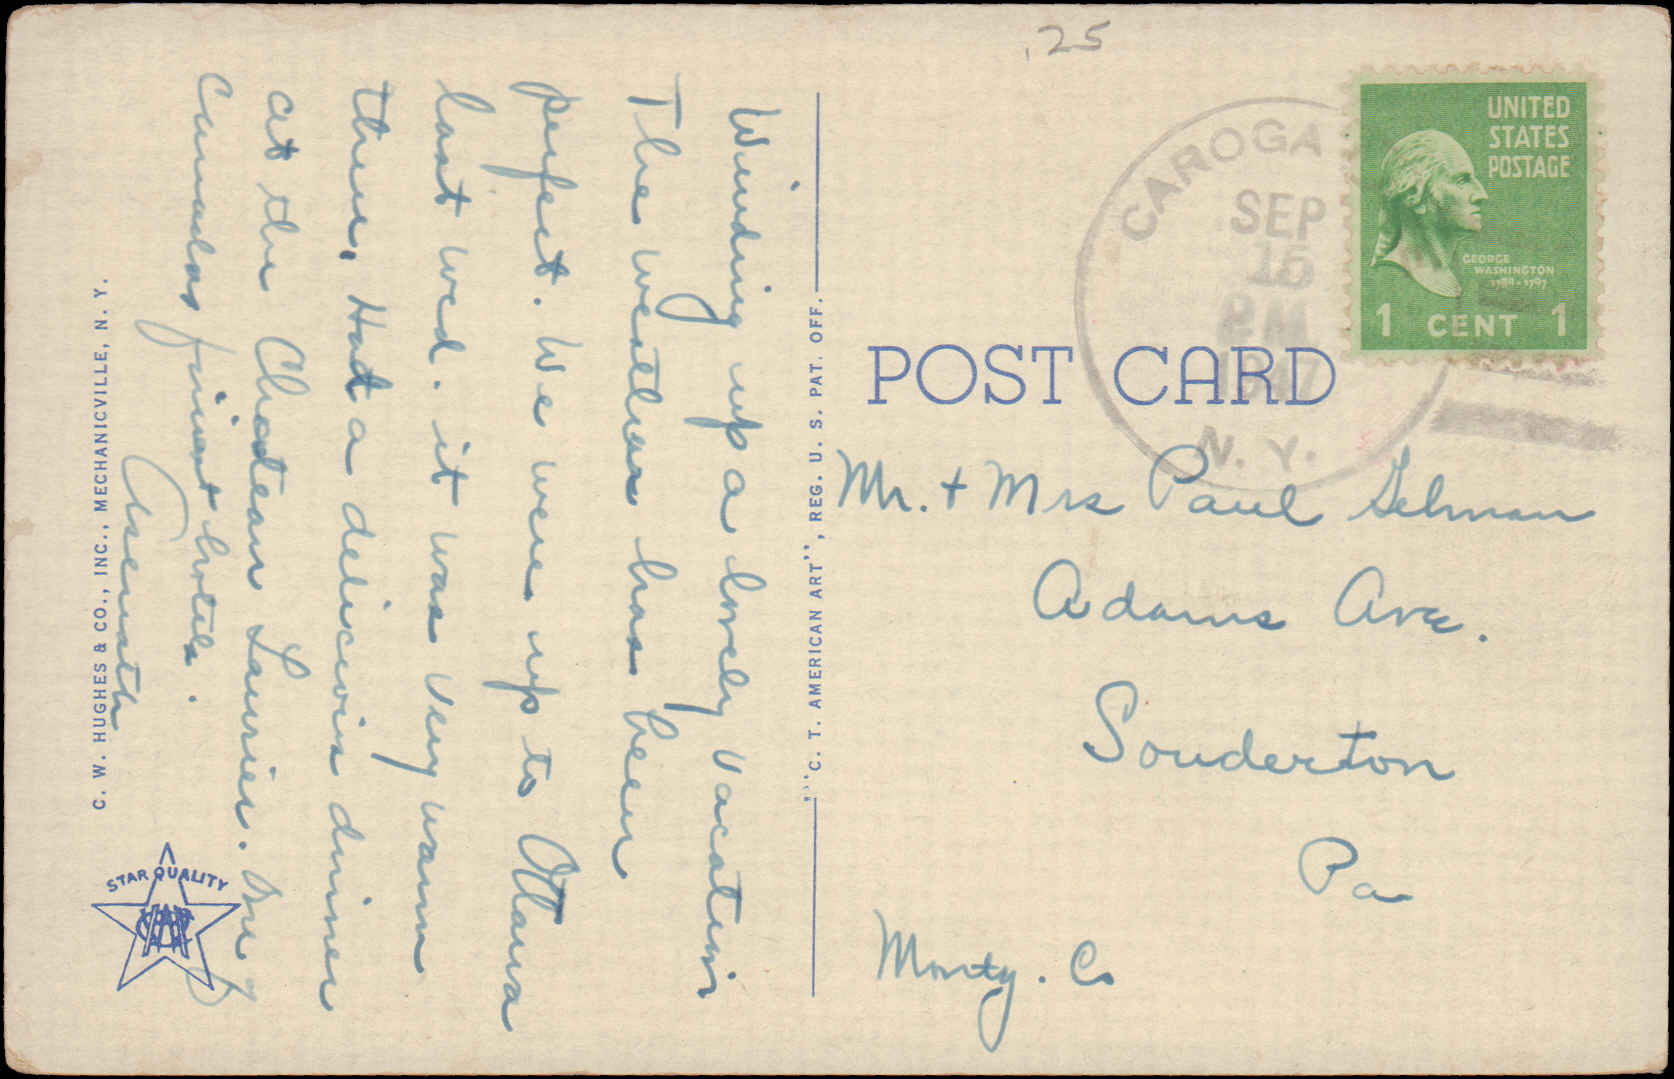 .25
CAROGA
SEP
15
PM
1947
N. Y.
UNITED
STATES
POSTAGE
GEORGE
WASHINGTON
1789-1797
1 CENT 1
POST CARD
Mr. + Mrs Paul Gehman
Adams Ave.
Souderton
Pa
Montg. Co
Winding up a lovely vacation
The weather has been
perfect. We were up to Ottawa
last wed. it was very warm
there, Had a delicious dinner
at the Chateau Laurier. One of
Canadas finest hotels.
Asenath
"C. T. AMERICAN ART", REG. U. S. PAT. OFF.
C. W. HUGHES & CO., INC., MECHANICVILLE, N. Y.
STAR QUALITY